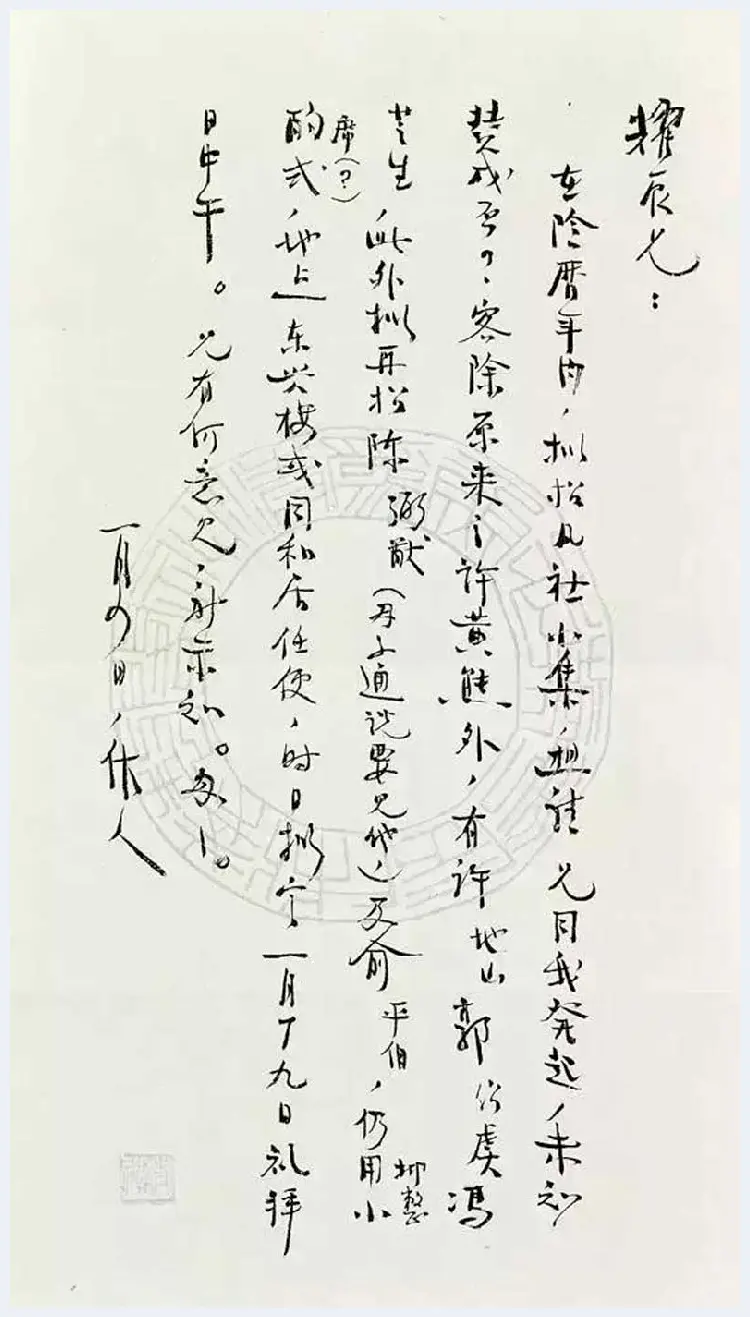 耀辰兄：
在阴历年内，拟招凡社小集，想请兄同我发起，未知
赞成否？客除原来之许黄熊外，有许地山郭绍虞冯
芝生，此外拟再招陈（母子通说要见他）及俞平伯，仍用小
酌式，地点东兴楼或同和居任便，时日拟定一月十九日礼拜
席（？）抑整
日中午。兄有何意见，祈示知。
一月四日，作人